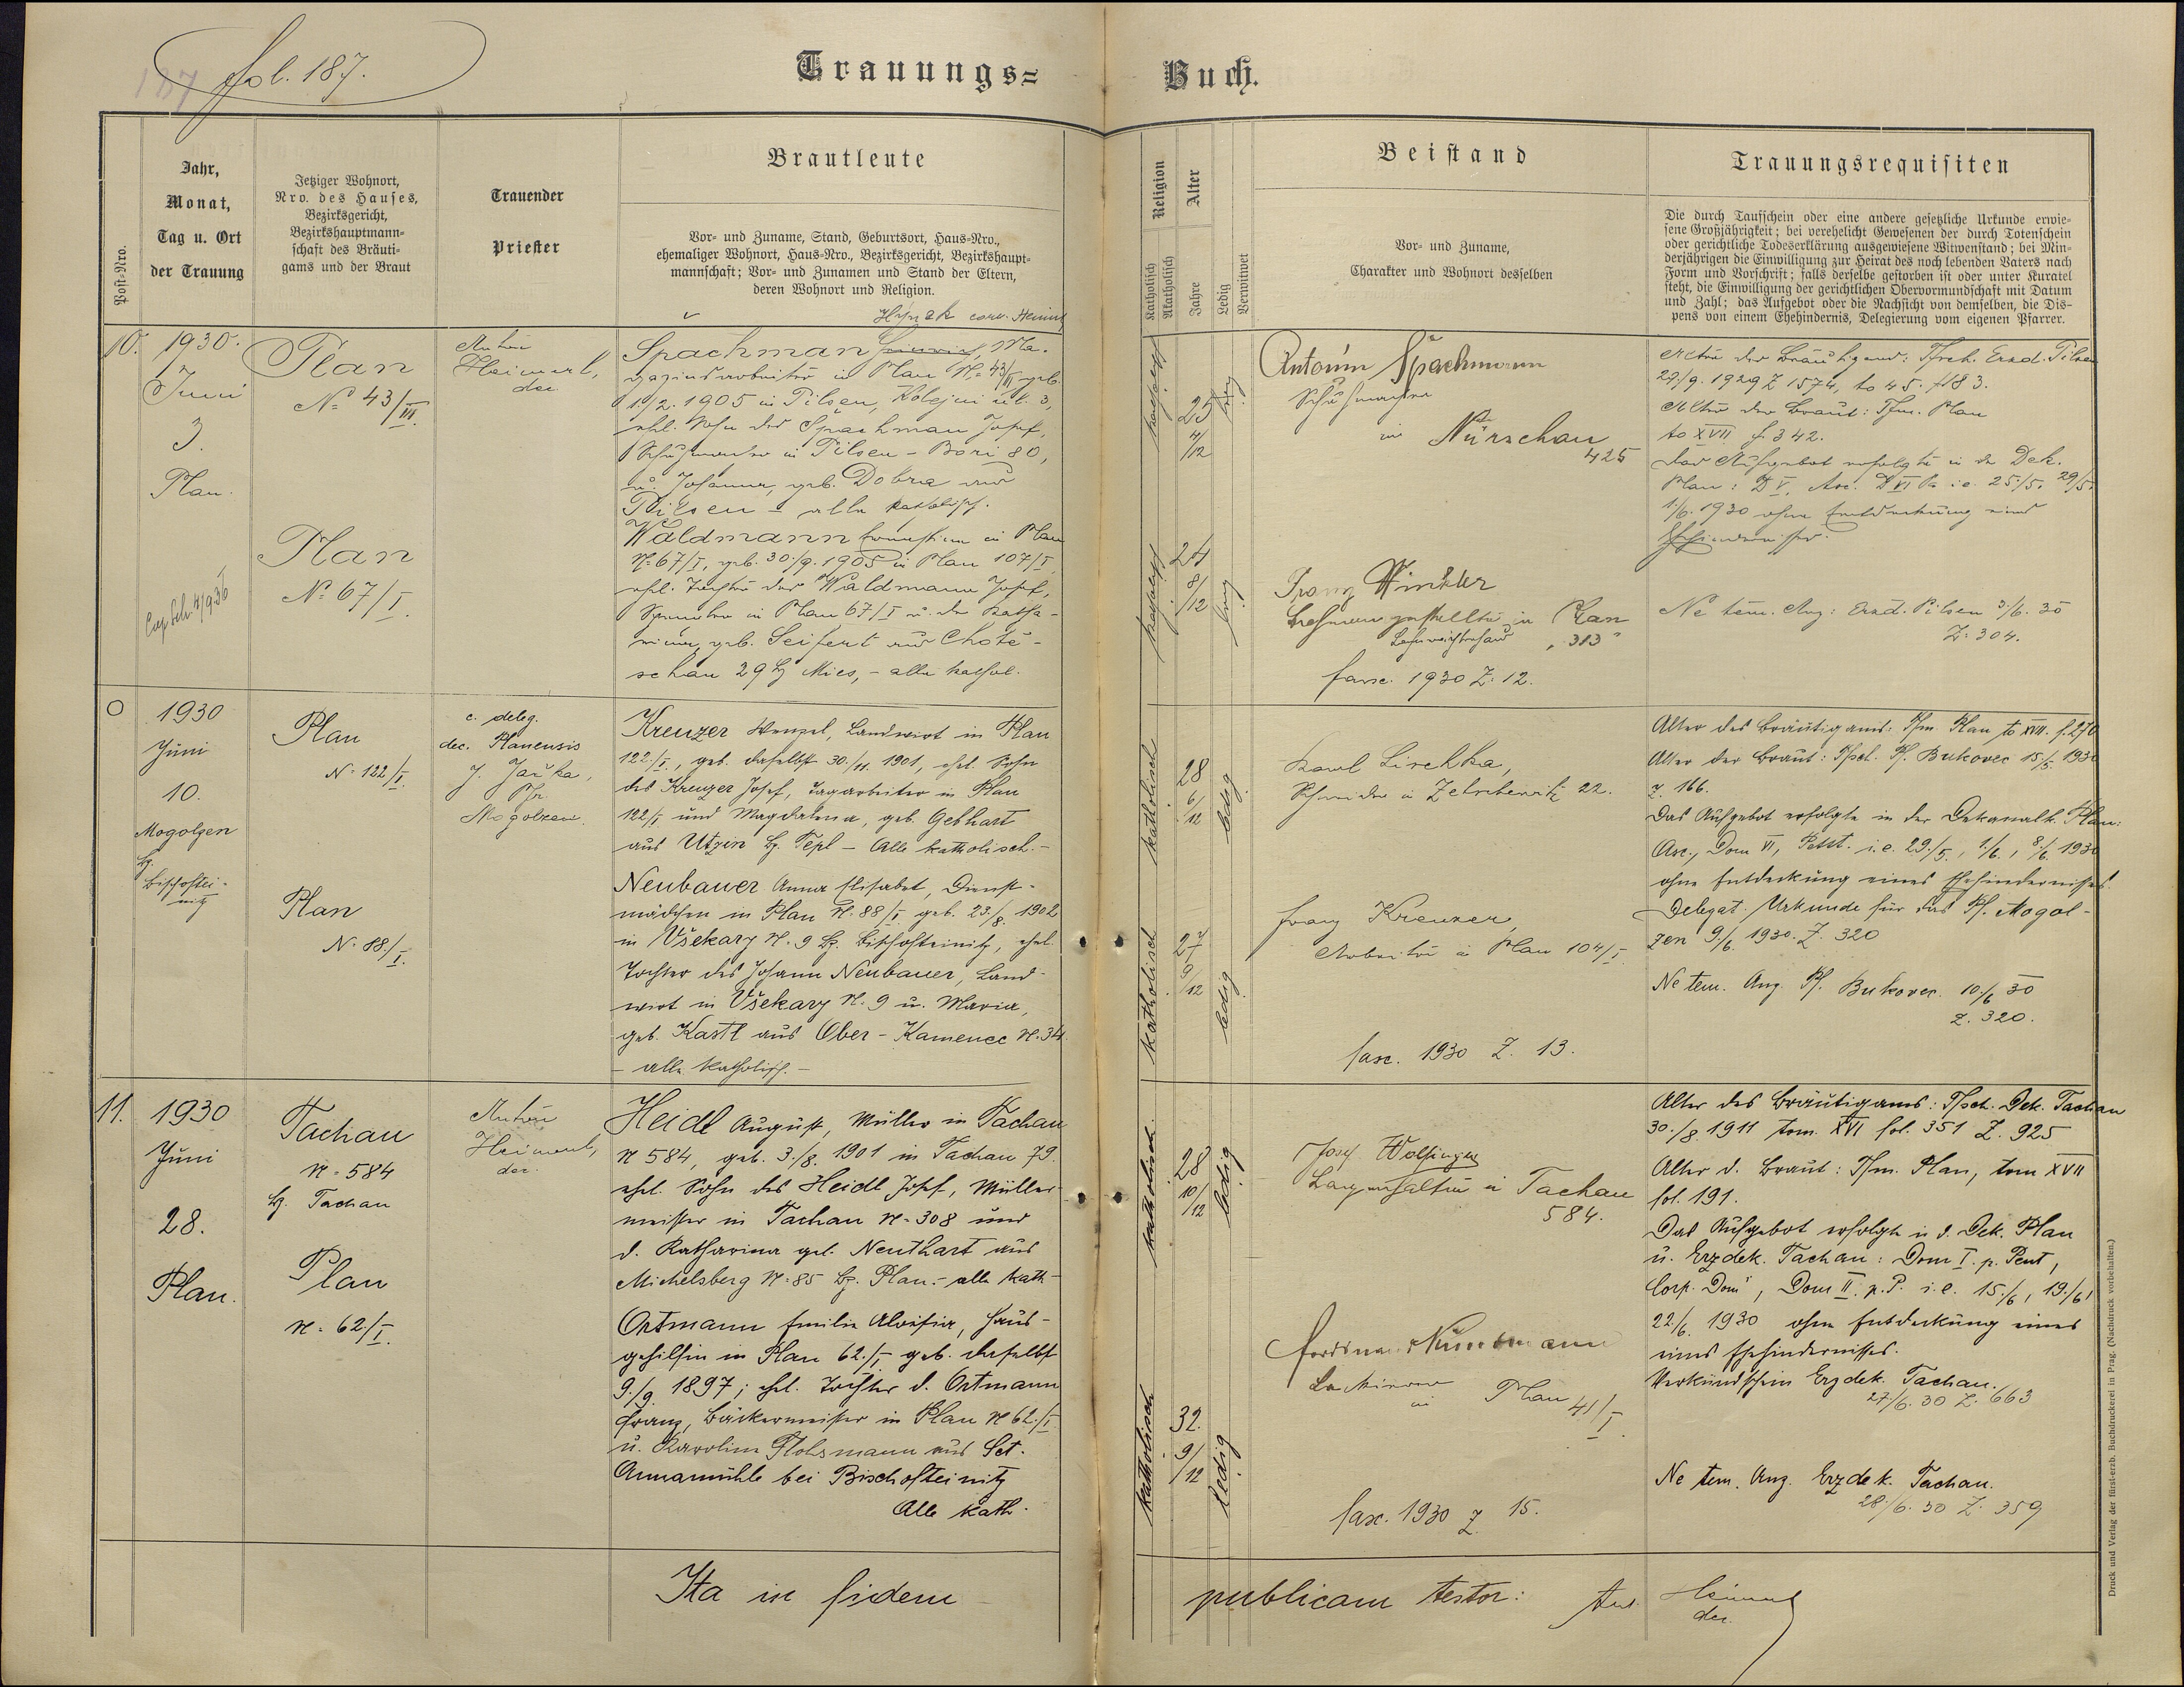 fol. 187.
187
Trauungs=
Buch.
Post-Nro.
Jahr,
Monat,
Tag u. Ort
der Trauung
Jetziger Wohnort,
Nro. des Hauses,
Bezirksgericht,
Bezirkshauptmann=
schaft des Bräuti=
gams und der Braut
Trauender
Priester
Brautleute
Vor= und Zuname, Stand, Geburtsort, Haus=Nro.,
ehemaliger Wohnort, Haus=Nro., Bezirksgericht, Bezirkshaupt=
mannschaft; Vor= und Zunamen und Stand der Eltern,
deren Wohnort und Religion.
Religion
Katholisch
Akatholisch
Alter
Jahre
Ledig
Verwitwet
Beistand
Vor= und Zuname,
Charakter und Wohnort desselben
Trauungsrequisiten
Die durch Taufschein oder eine andere gesetzliche Urkunde erwie=
sene Großjährigkeit; bei verehelicht Gewesenen der durch Totenschein
oder gerichtliche Todeserklärung ausgewiesene Witwenstand; bei Min=
derjährigen die Einwilligung zur Heirat des noch lebenden Vaters nach
Form und Vorschrift; falls derselbe gestorben ist oder unter Kuratel
steht, die Einwilligung der gerichtlichen Obervormundschaft mit Datum
und Zahl; das Aufgebot oder die Nachsicht von demselben, die Dis=
pens von einem Ehehindernis, Delegierung vom eigenen Pfarrer.
10.
1930.
Juni
3.
Plan.
Plan
No 43/III.
Plan
No 67/I.
Anton
Heimerl,
dec
Hynek corr. Heimerl
Spachman Heinrich, Ma-
gazinsarbeiter in Plan No 43/III geb.
1./2. 1905 in Pilsen, Kolejni ul. 3,
ehl. Sohn des Spachman Josef,
Schuhmacher in Pilsen - Bori 80,
u. Johanna, geb. Dobra aus
Pilsen - alle katholisch.
Waldmann Ernestine in Plan
No 67/I, geb. 30./9. 1905 in Plan 107/I
ehl. Tochter des Waldmann Josef,
in Plan 67/I u. der Katha-
rina, geb. Seifert aus Chote-
schau 29 Bz Mies, - alle kathol.
katholisch
25
4/12
ledig
katholisch
24
8/12
ledig
Antonín Spachmann
Schuhmacher
in Nürschan
425
Franz Winkler
in Plan
313
fasc. 1930 Z. 12.
Alter des Bräutigams: Tfsch. Erzd. Pilsen
29./9. 1929 Z 1574, to 45. f 183.
Alter der Braut: Tfm. Plan
to XVII f. 342.
Das Aufgebot erfolgte in der Dek.
Plan: D V, Asc. D VI i.e. 25./5. 29/5.
1./6. 1930 ohne Entdeckung eines
Ehehindernisses.
Ne tem. Anz: Erzd. Pilsen 3/6. 30
Z: 304.
O
1930
Juni
10.
Mogolzen
Bz.
Bischoftei-
nitz
Plan
No 122/I.
Plan
No 88./I.
c. deleg.
dec. Planensis
J. Jaŭka,
Pfr.
Mogolzen.
Kreuzer Wenzel, Landwirt in Plan
122./I., geb. daselbst 30./11. 1901, ehel. Sohn
des Kreuzer Josef, Tagarbeiter in Plan
122/I und Magdalena, geb. Gebhart
aus Utzin Bz. Tepl - Alle katholisch. -
Neubauer Anna Elisabet, Dienst-
mädchen in Plan N. 88/I geb. 23./8. 1902
in Všekary N. 9 Bz. Bischofteinitz, ehel.
Tochter des Johann Neubauer, Land-
wirt in Všekary N. 9 u. Maria,
geb. Kastl aus Ober - Kamenec N. 34.
- alle katholisch. -
katholisch
28
6/12
ledig
katholisch
27
9/12
ledig
Karl Lischka,
Schneider in Zetschowitz 22.
Franz Kreuzer,
Arbeiter in Plan 104/I.
fasc. 1930 Z. 13.
Alter des Bräutigams: Tfm. Plan to XVII. f. 270
Alter der Braut: Tfsch. Pf. Bukovec 15/5. 1930
Z. 166.
Das Aufgebot erfolgte in der Dekanalk. Plan:
Asc., Dom VI, Petst. i.e. 29./5., 1./6., 8./6. 1930
ohne Entdeckung eines Ehehindernisses.
Delegat. Urkunde für das Pf. Mogol-
zen 9./6. 1930. Z. 320
Ne tem. Anz. Pf. Bukovec. 10./6 30
Z. 320.
11.
1930
Juni
28.
Plan.
Tachau
N = 584
Bz. Tachau
Plan
N = 62/I.
Anton
Heimerl,
dec.
Heidl August, Müller in Tachau
N 584, geb. 3./8. 1901 in Tachau 79.
ehel. Sohn des Heidl Josef, Müller-
meister in Tachau N = 308 und
d. Katharina geb. Neuthart aus
Michelsberg N = 85 Bz. Plan. - alle kath -
Ortmann Emilie Aloisia, Haus-
gehilfin in Plan 62./I geb. daselbst
9./9. 1897; ehel. Tochter d. Ortmann
Franz, Bäckermeister in Plan N 62./I
u. Karolina Flohsmann aus Sct.
Annamühle bei Bischofteinitz
Alle kath.
katholisch
28
10/12
ledig
katholisch
32.
9/12
ledig
Josef Wolfinger
in Tachau
584.
in Plan 41/I
fasc. 1930 Z 15.
Alter des Bräutigams: Tfsch. Dek. Tachau
30./8. 1911 tom. XVI fol. 351 Z. 925
Alter d. Braut: Tfm. Plan, tom XVII
fol. 191.
Das Aufgebot erfolgte in d. Dek. Plan
u. Erzdek. Tachau: Dom I. p. Pent,
Corp. Dom, Dom II. p. P. i.e. 15./6, 19./6,
22/6. 1930 ohne Entdeckung eines
eines Ehehindernisses.
Verkündschein Erzdek. Tachau.
27/6. 30 Z. 663
Ne tem. Anz. Erzdek. Tachau.
28./6. 30 Z. 359
Ita in fidem
publicam testor: Ant. Heimerl
dec.
Druck und Verlag der fürst-erzb. Buchdruckerei in Prag. (Nachdruck vorbehalten.)